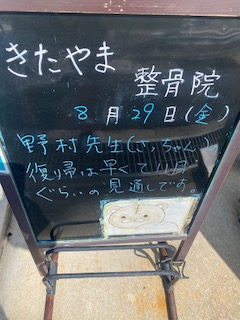 きたやま
整骨院
8月29日(金)
野村先生(
復帰は早くて
ぐらいの見通しです。